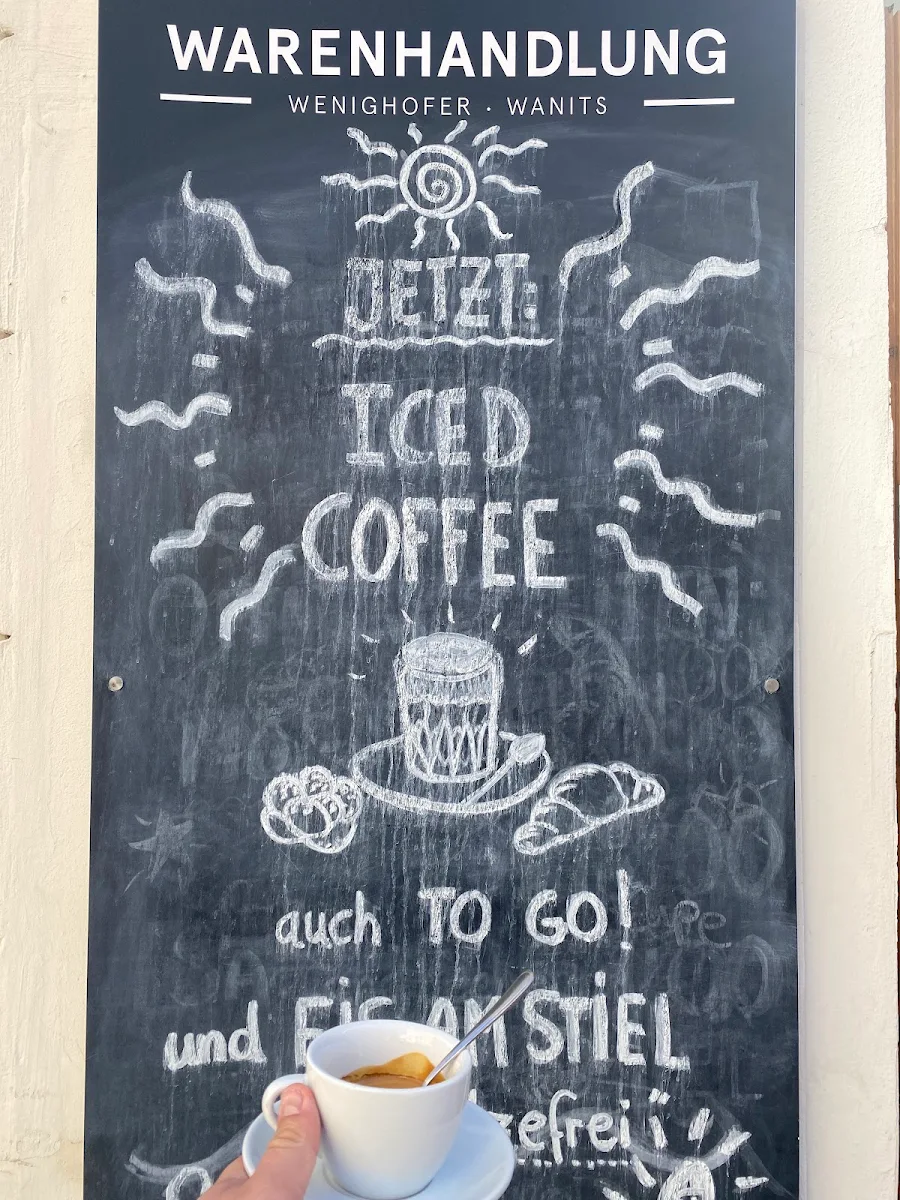 WARENHANDLUNG
WENIGHOFER · WANITS
JETZT:
ICED
COFFEE
auch TO GO!
und EIS AM STIEL